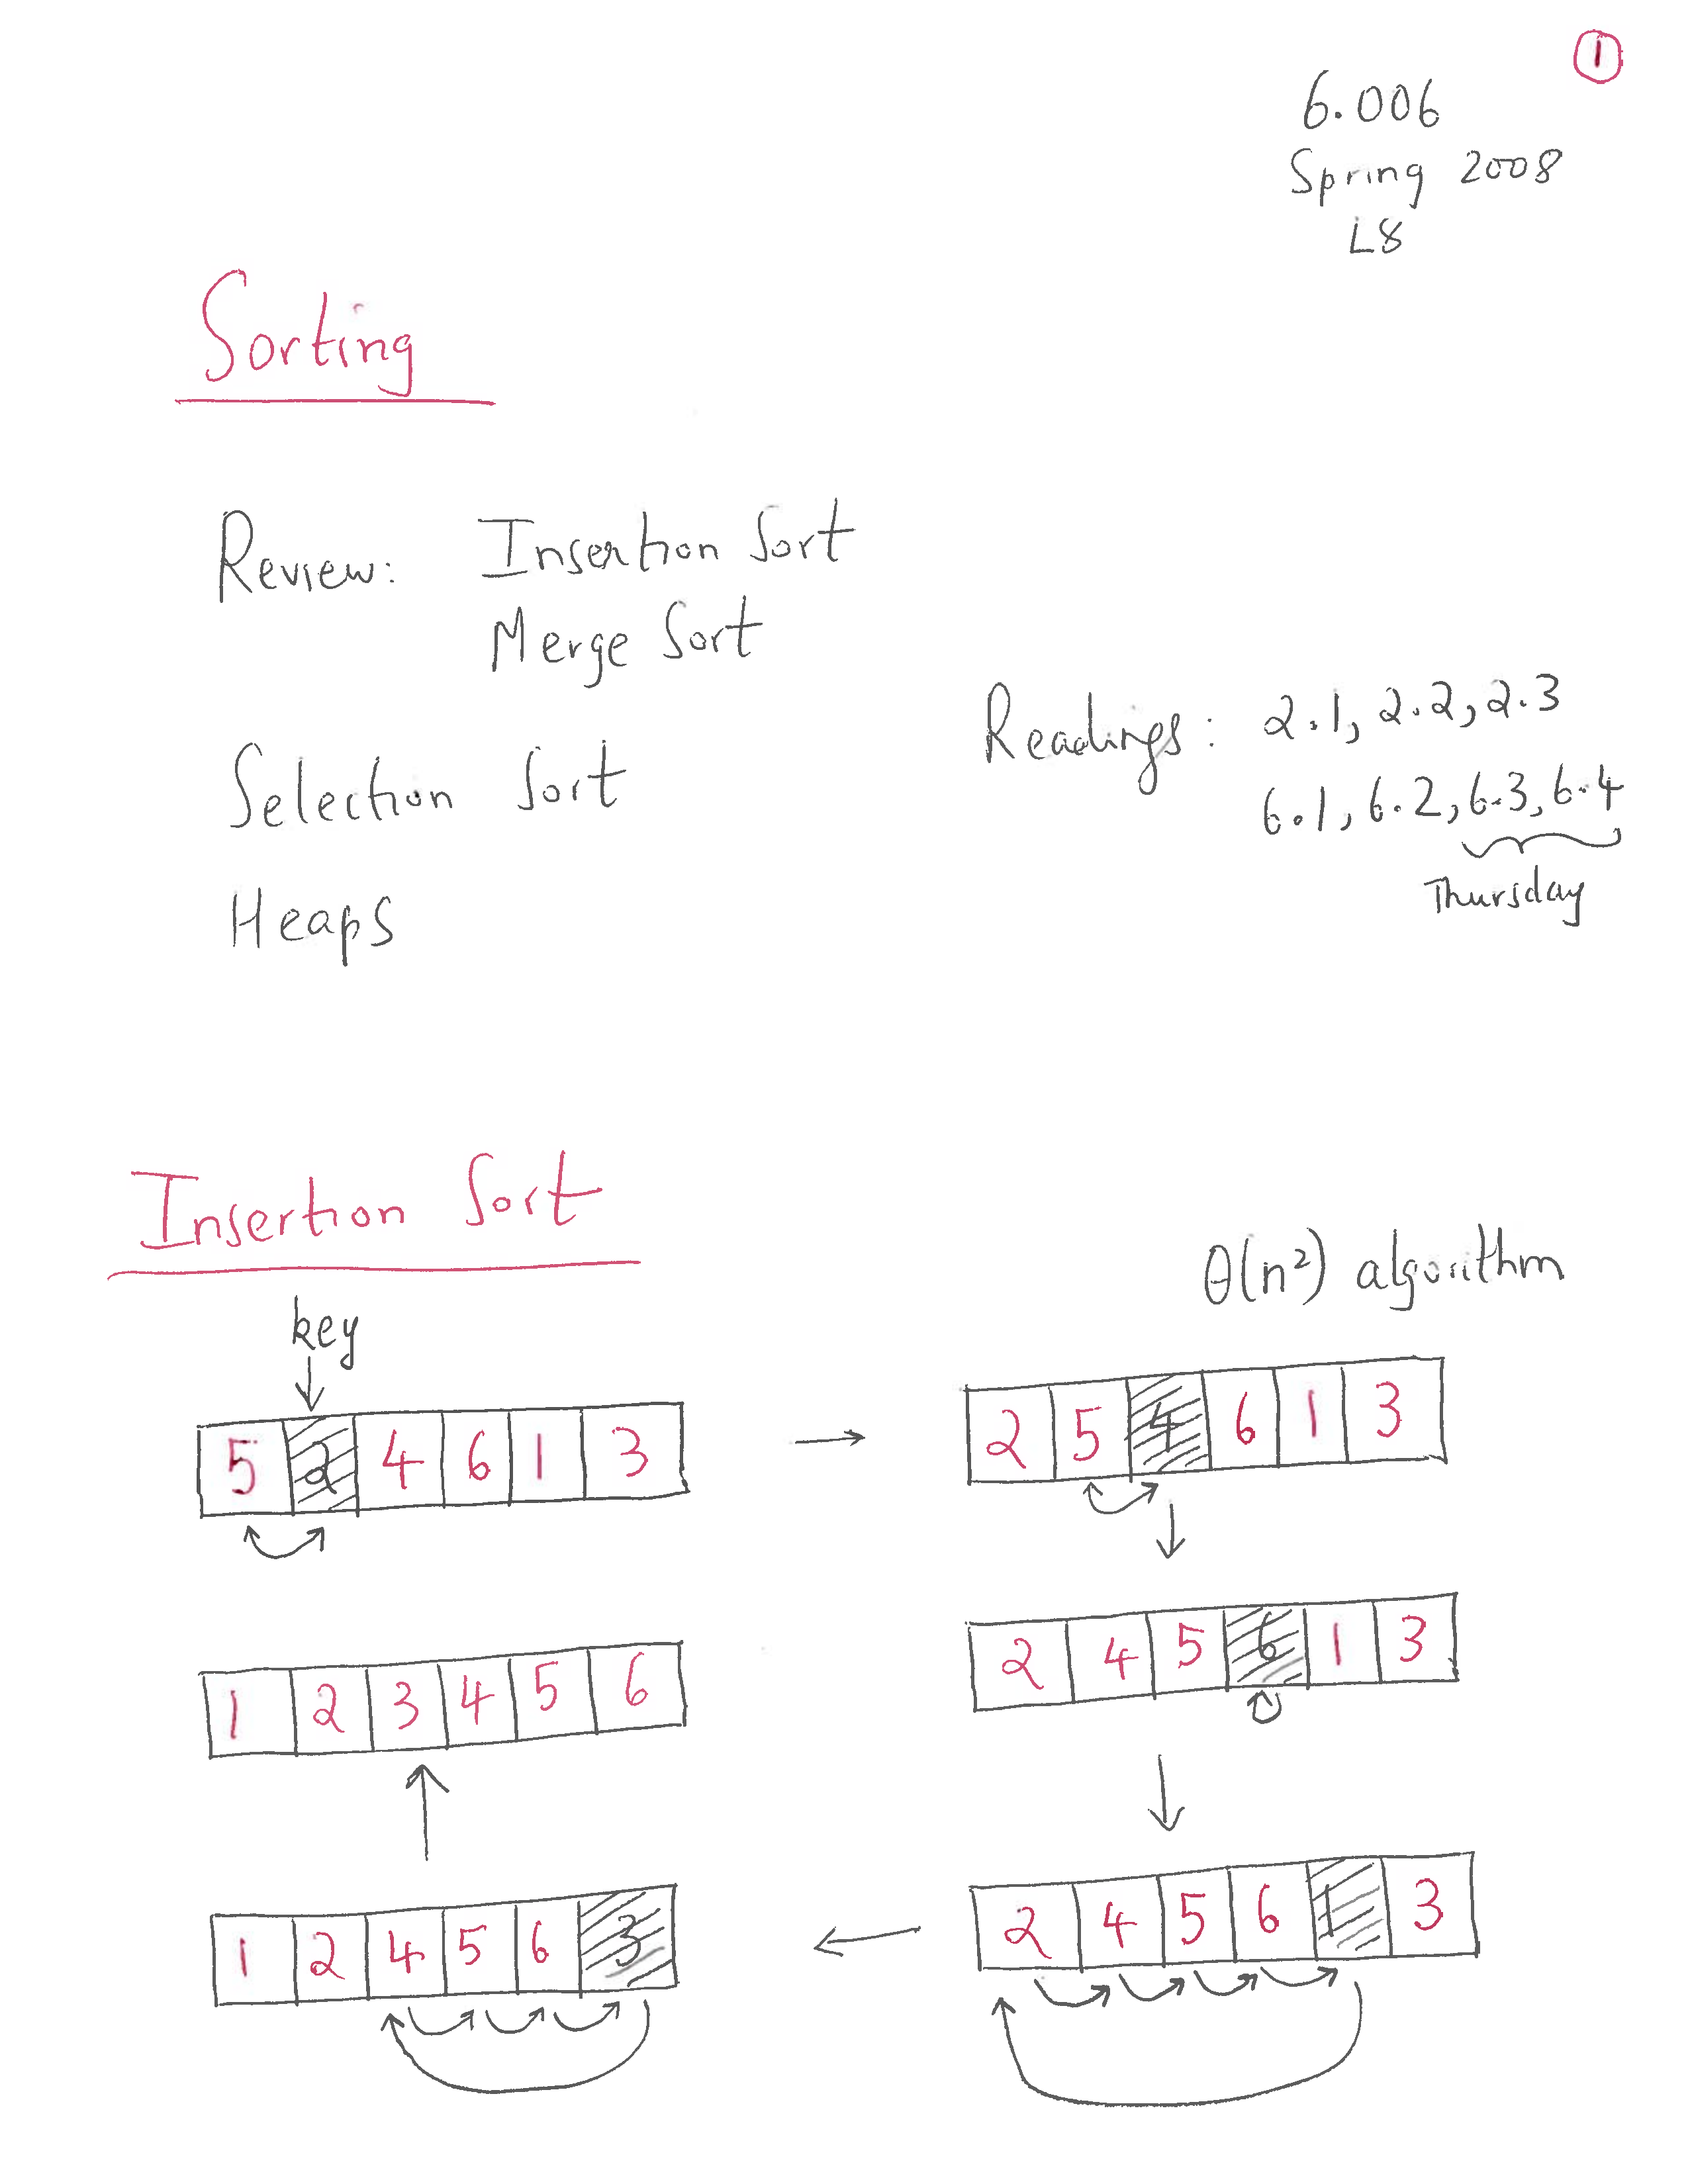 1
6.006
Spring 2008
L8
Sorting
Review: Insertion Sort
Merge Sort
Selection Sort
Heaps
Readings: 2.1, 2.2, 2.3
6.1, 6.2, 6.3, 6.4
Thursday
Insertion Sort
θ(n²) algorithm
key
5 2 4 6 1 3
2 5 4 6 1 3
2 4 5 6 1 3
2 4 5 6 1 3
1 2 4 5 6 3
1 2 3 4 5 6